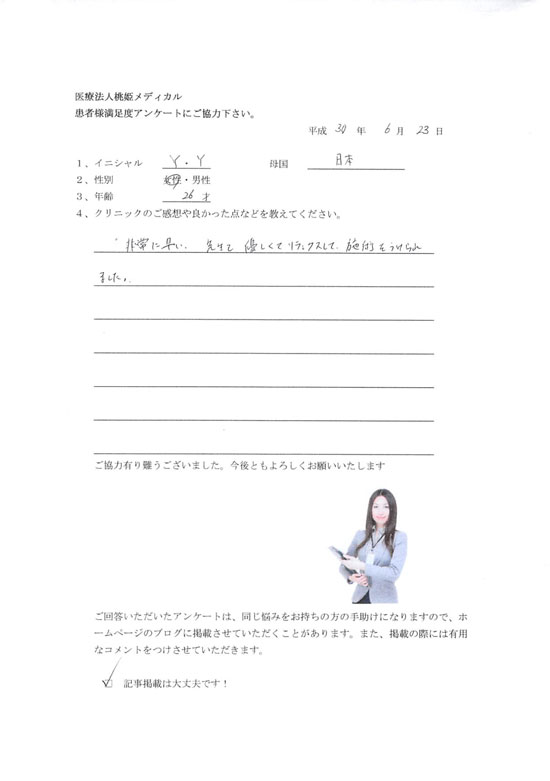 医療法人桃姫メディカル
患者様満足度アンケートにご協力下さい。
平成 30 年 6 月 23 日
1、イニシャル Y・Y 母国 日本
2、性別 女性・男性
3、年齢 26 才
4、クリニックのご感想や良かった点などを教えてください。
非常に早い、先生も優しくてリラックスして、施術をうけられ
ました。
ご協力有り難うございました。今後ともよろしくお願いいたします
ご回答いただいたアンケートは、同じ悩みをお持ちの方の手助けになりますので、ホ
ームページのブログに掲載させていただくことがあります。また、掲載の際には有用
なコメントをつけさせていただきます。
☑ 記事掲載は大丈夫です！